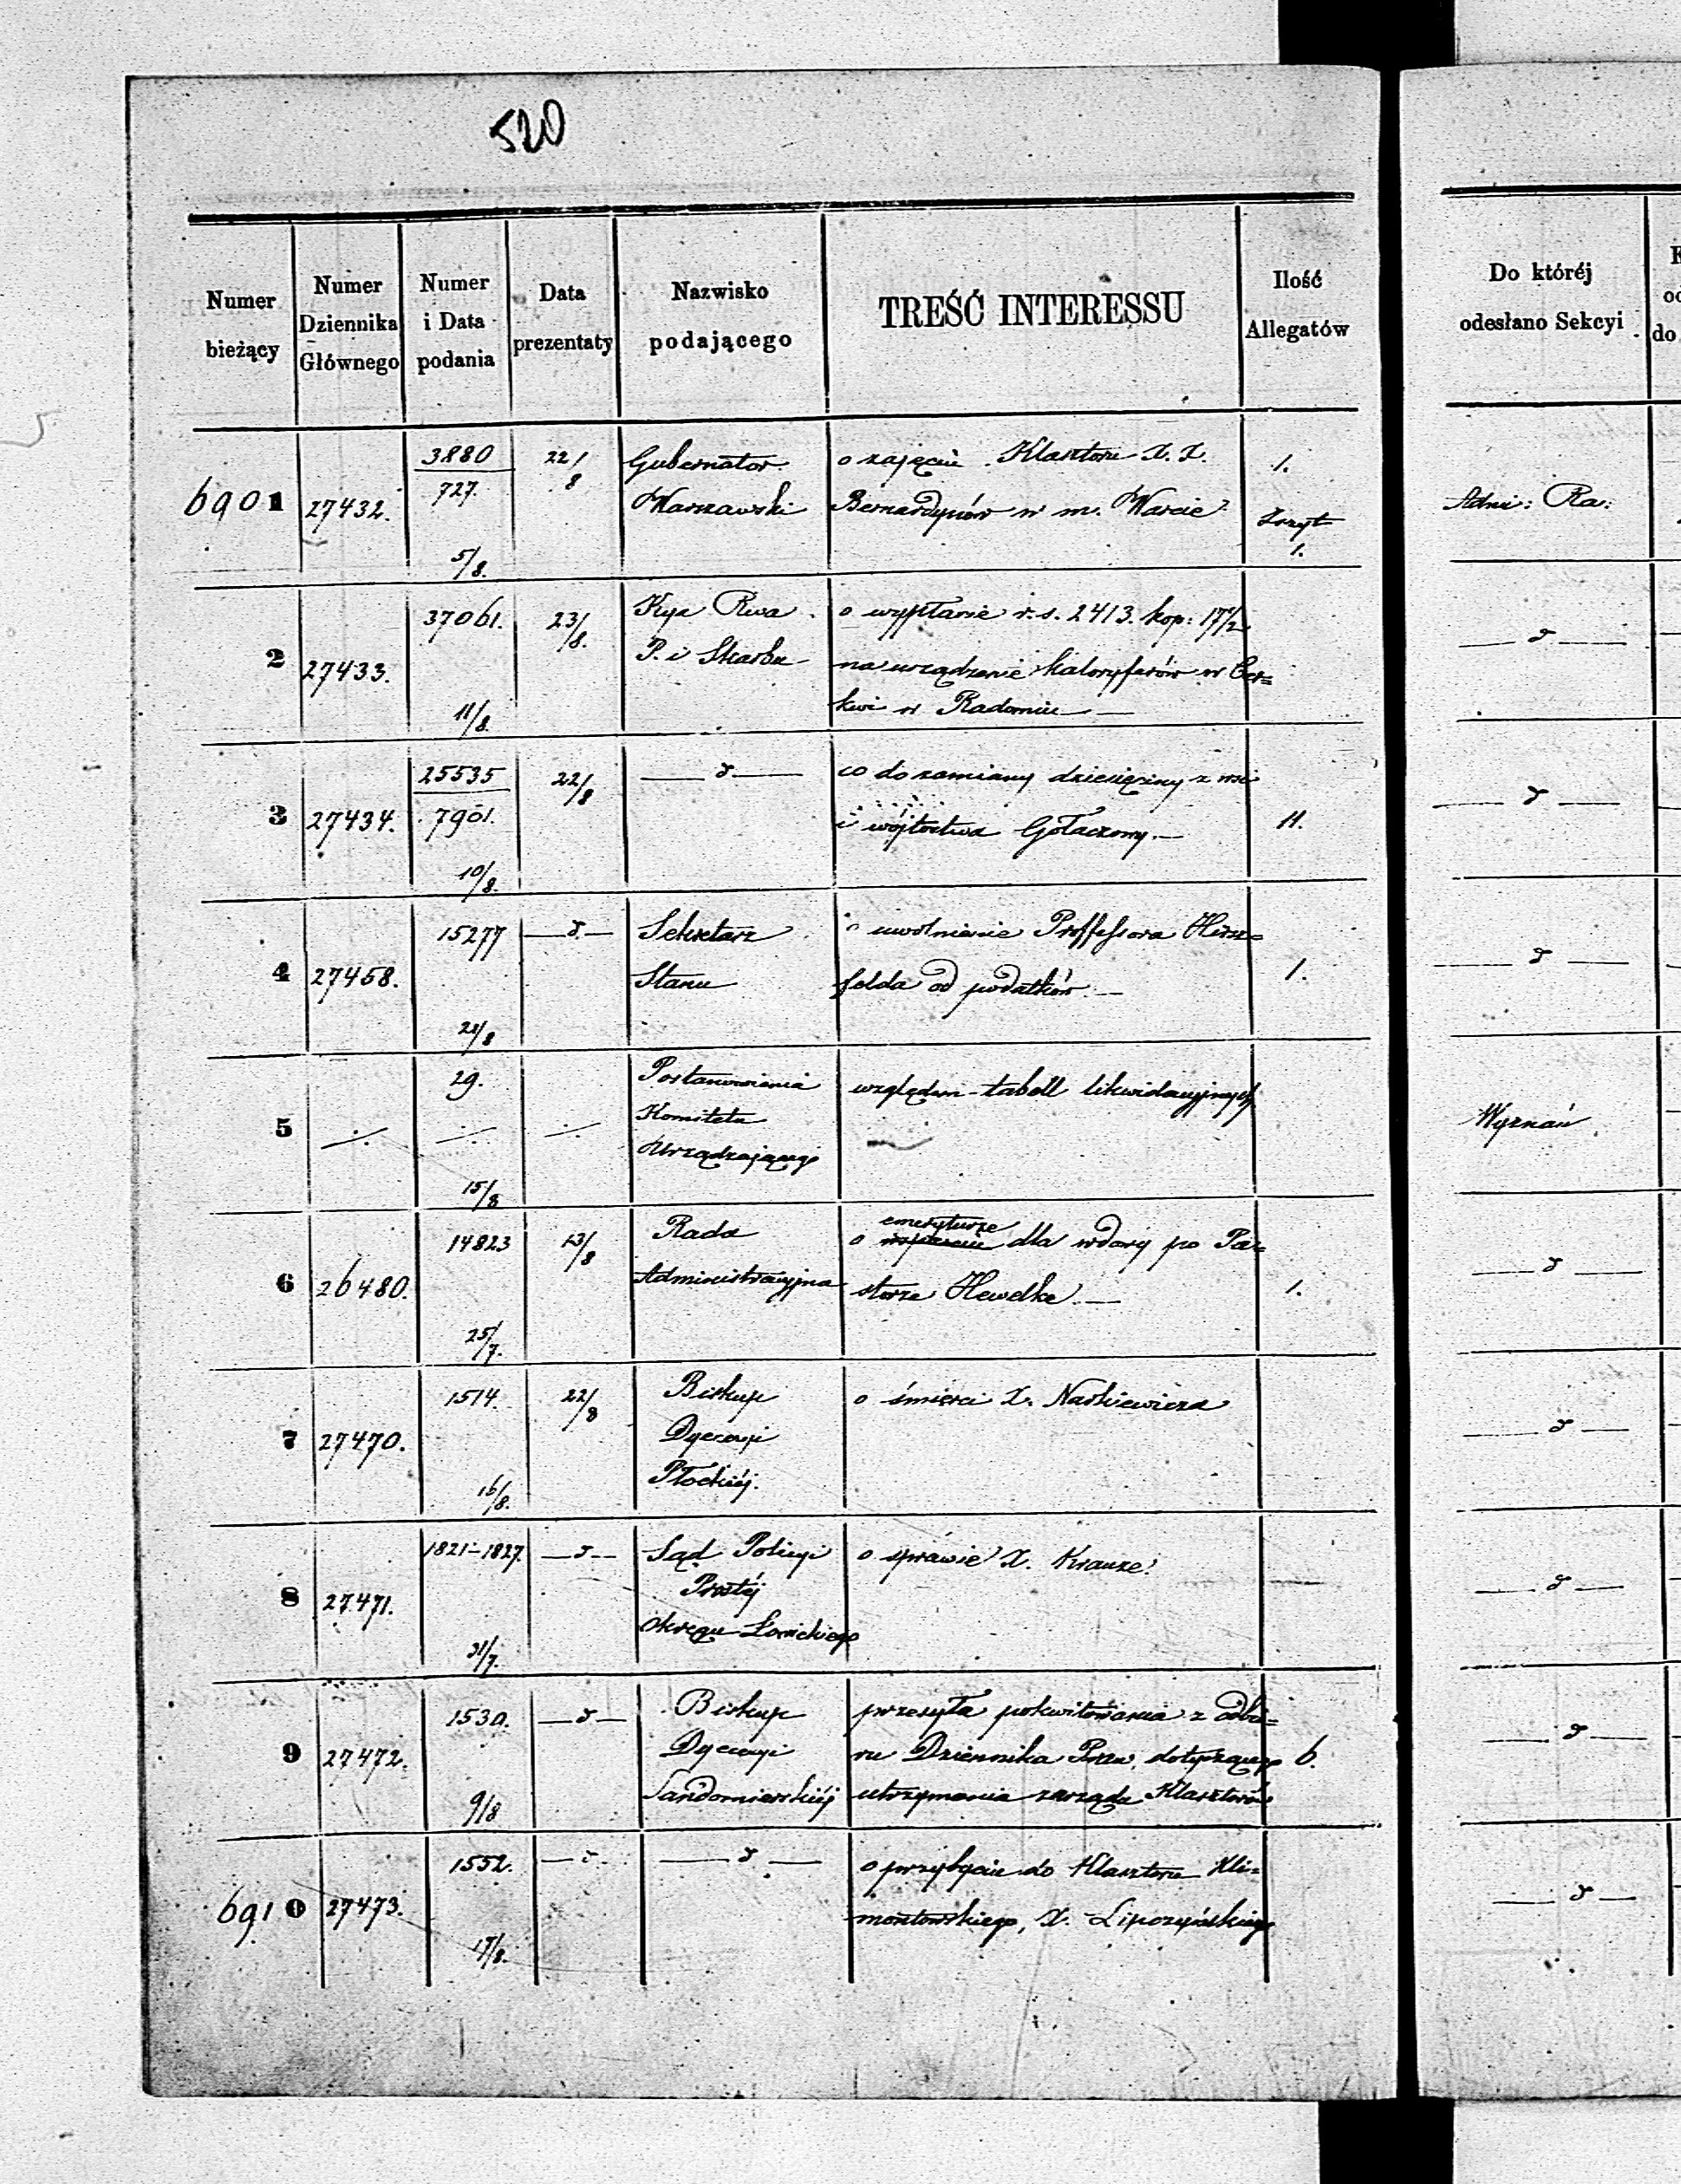 520
Numer bieżący | Numer Dziennika Głównego | Numer i Data podania | Data prezentaty | Nazwisko podającego | TREŚĆ INTERESSU | Ilość Allegatów | Do któréj odesłano Sekcyi
6901 | 27432. | 3880 / 727. 5/8. | 22/8 | Gubernator | o zajęcie Klasztoru X. X. | 1.
Warszawski | Bernardynów w m. Warcie | Zszyt 1. | Adm: Ra:
2 | 27433. | 37061. 11/8. | 23/8. | Kza Rwa | o wypłanie r. s. 2413. kop: 17 1/2
P. i Skarbu | na urządzenie kaloryferów w Cer= | — d —
kwi w Radomiu —
3 | 27434. | 25535 / 7901. 10/8. | 22/8 | — d — | co do zamiany dziesięciny z wsi
i wójtostwa Gołaczowy. — | 11. | — d —
4 | 27458. | 15277 | — d. — | Sekretarz | o uwolnienie Proffessora Hirsz=
Stanu | felda od podatków. — | 1. | — d —
21/8
5 | ./. | 29. ./. 15/8 | ./. | Postanowienia | względem tabell likwidacyjnych
Komitetu
Urządzającego | Wyznań
6 | 26480. | 14823 25/7. | 13/8 | Rada | o emeryturze dla wdowy po Pa=
Administracyjna | storze Hewelke. — | 1. | — d —
7 | 27470. | 1514. 16/8. | 22/8 | Biskup | o śmierci X. Naskiewicza
Dyecezyi
Płockiéj. | — d —
8 | 27471. | 1821–1827. 31/7. | — d — | Sąd Policyi | o sprawie X. Krauze.
Prostéj
Okręgu Łowickiego | — d —
9 | 27472. | 1530. 9/8 | — d — | Biskup | przesyła pokwitowania z odbi=
Dyecezyi | ru Dziennika Praw, dotyczącego | 6. | — d —
Sandomierskiéj | utrzymania zarządu Klasztorów
6910 | 27473. | 1552. 17/8. | — d — | — d — | o przybyciu do Klasztoru Kli=
montowskiego, X. Lipczyńskiego | — d —